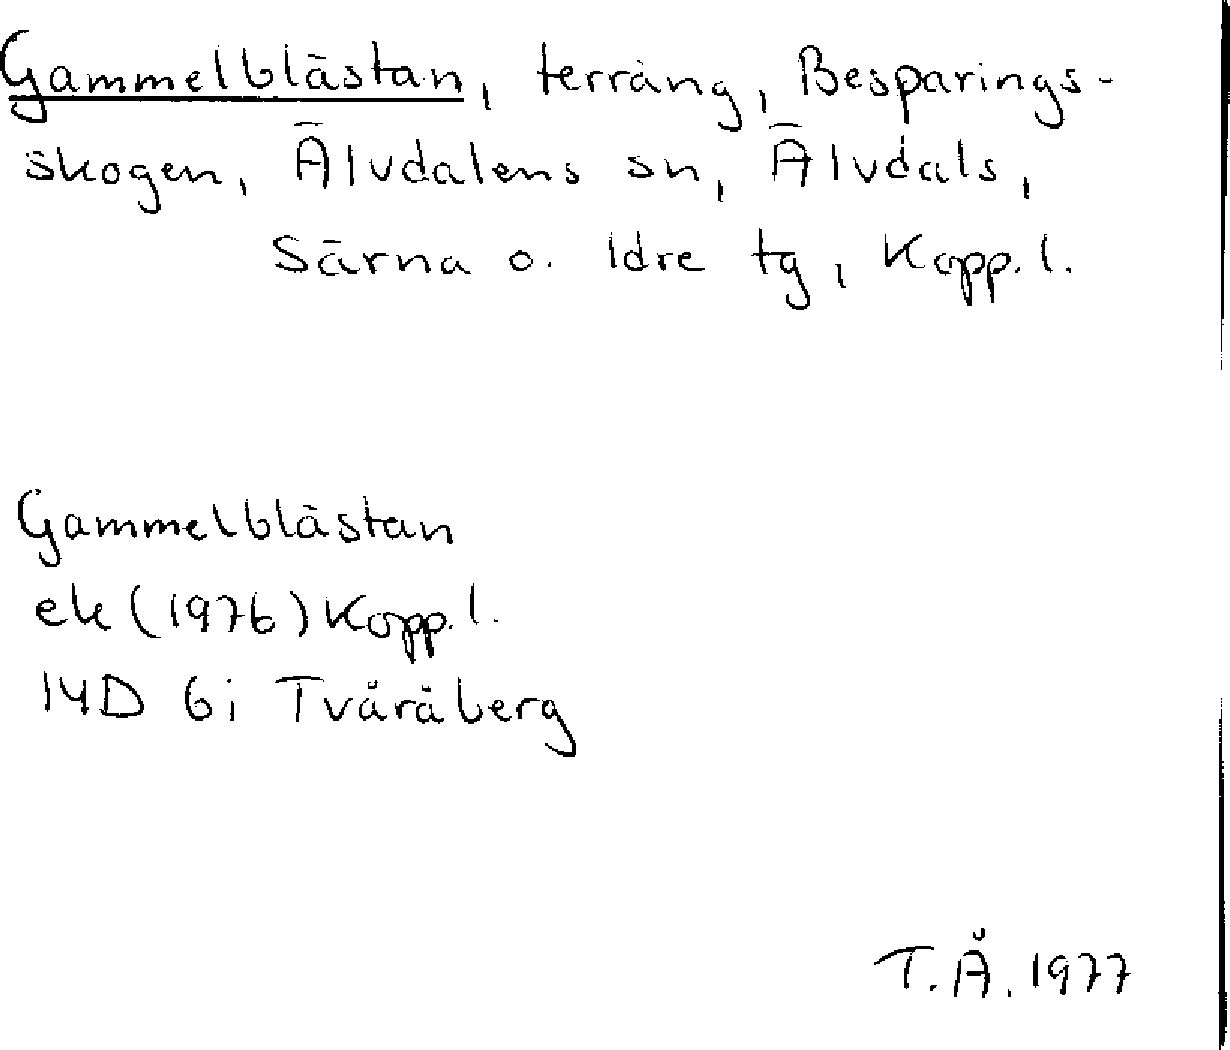 Gammelblästan, terräng, Besparings-
skogen, Älvdalens sn, Älvdals,
Särna o. Idre tg, Kopp. l.
Gammelblästan
ek (1976) Kopp. l.
14D 6i Tvåråberg
T. Å. 1977